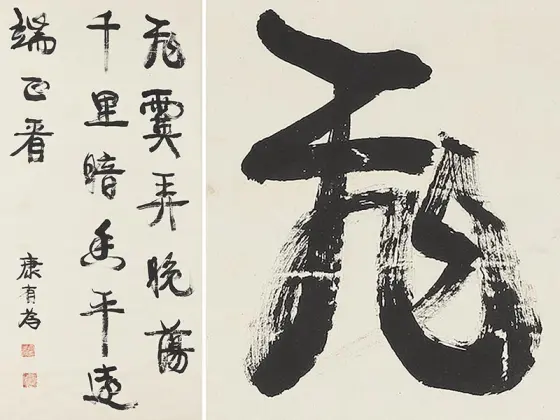 飛霙弄晚蕩
千里暗香平遠
端正看
康有為
飛